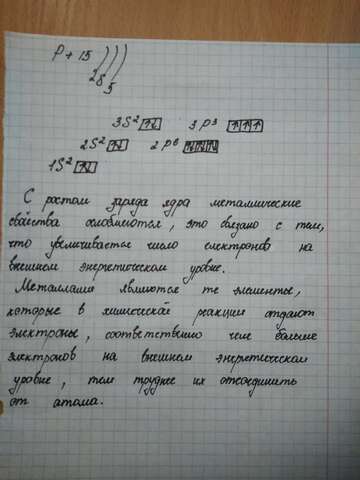 P + 15 )))
2 8 5
3S² ↑↓ 3P³ ↑↑↑
2S² ↑↓ 2P⁶ ↑↓↑↓↑↓
1S² ↑↓
С ростом заряда ядра металлические
свойства ослабляются, это связано с тем,
что увеличивается число електронов на
внешнем энергетическом уровне.
Металлами являются те элементы,
которые в химической реакции отдают
электроны, соответственно чем больше
электронов на внешнем энергетическом
уровне, тем труднее их отсоединить
от атома.